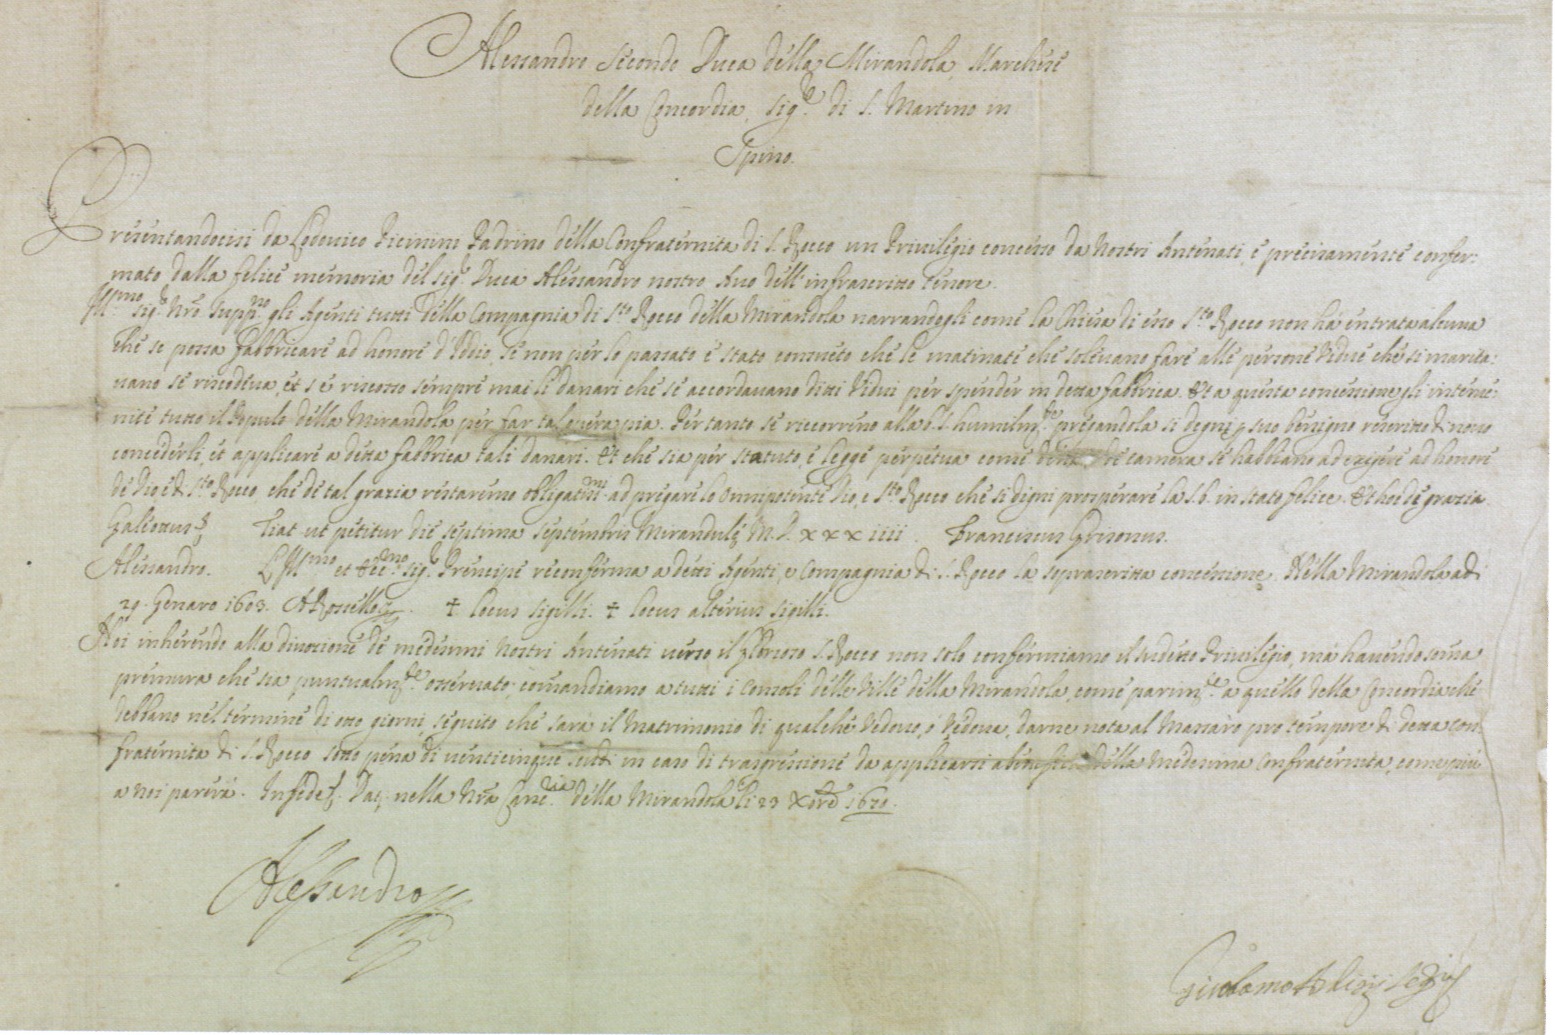 Alessandro Secondo Duca della Mirandola, Marchese
della Concordia, Sig.re di S. Martino in
Spino.
Presentandocisi da Lodovico Padrino della Confraternita di S. Rocco un Privilegio concesso da Nostri Antenati, e precisamente confer:
mato dalla felice memoria del Sig.r Duca Alessandro nostro Avo dell'infrascritto tenore.
Ill.mo Sig.r Nro. gli Agenti tutti della Compagnia di S.to Rocco della Mirandola narrandogli come la Chiesa di esso S.to Rocco non há entrata alcuna
che se possa fabbricare ad honore d'Iddio, se non per lo passato è stato consueto che le matinate che solevano fare alle persone vidue che si marita:
vano se riscodeva, et s'è riscosso sempre mai li danari che se accordavano ditti vidui per spender in detta fabbrica. Et a questa concessione gli interve:
nite tutto il Populo della Mirandola per far tal opera pia. Per tanto se riccorreno alla S.S. humilm.te pregandola si degni p suo benigno rescritto di novo
concederli, et applicare a detta fabbrica tali danari. Et che sia per statuto, e legge perpetua come camera se habbiano ad exigere ad honore
de Dio e di S.to Rocco, che de tal grazia restaremo obligatis.mi ad pregare lo Omnipotente Dio, e S.to Rocco che si digni prosperare la S.S. in stato felice. Et hoc de grazia.
Galeottus Fiat ut petitur die septima Septembris Mirandulę M.D.XXXIIII. Franciscus Grisonus.
Alessandro. L'Ill.mo et Ecc.mo Sig.r Principe reconferma a detti Agenti, e Compagnia di S. Rocco la soprascritta concessione. Nella Mirandola adi
29. Genaro 1603. † Locus sigilli. † Locus alterius sigilli.
Noi inherendo alla divozione de medesimi Nostri Antenati verso il Glorioso S. Rocco non solo confermiamo il sudetto Privilegio, má havendo soma
premura che sia puntualm.te osservato; comandiamo a tutti i Consoli delle Ville della Mirandola, come parim.te a quello della Concordia che
debbano nel termine di otto giorni, seguito che sarà il Matrimonio di qualche Vedovo, ó Vedova, darne nota al Massaro pro tempore di detta Con
fraternita di S. Rocco sotto pena di venticinque scudi in caso di trasgressione da applicarsi a beneficio della medesima Confraternita, come più
a noi parerà. In fede Dat. nella Nra Canc.ria della Mirandola li 23 Xbre
Alessandro